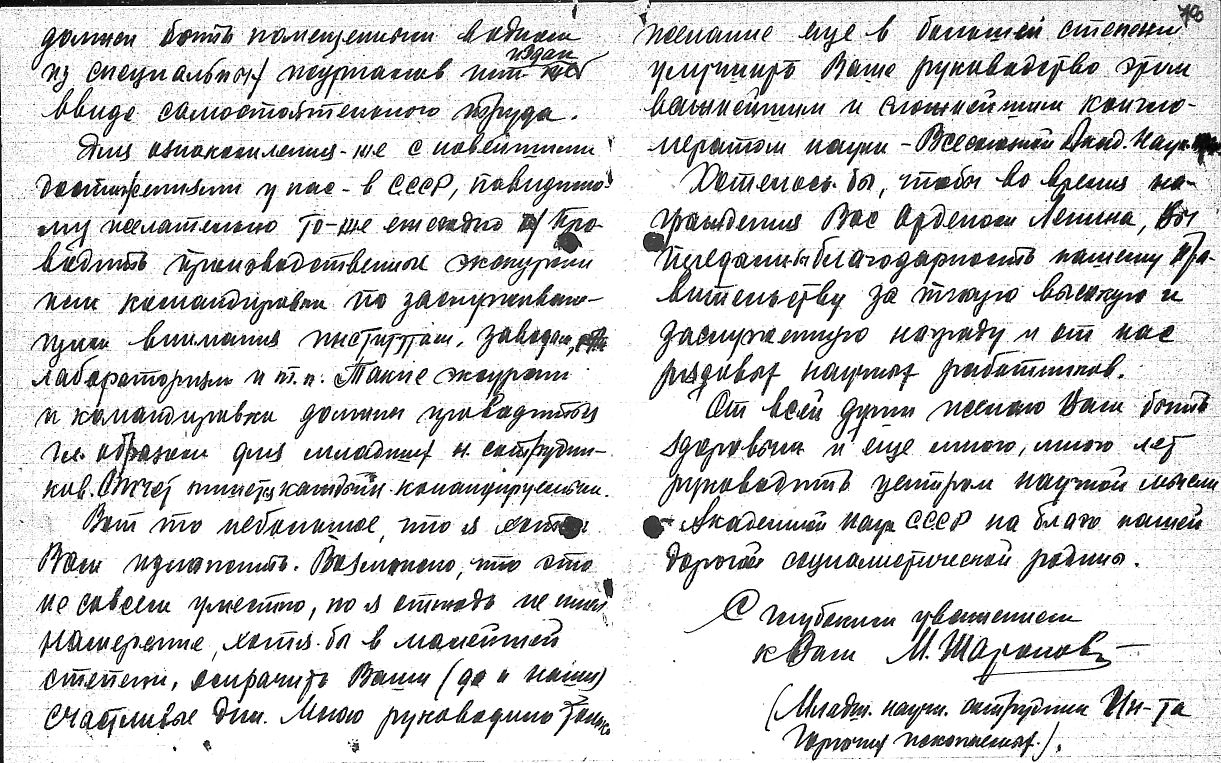 должен быть помещенным в одном
из специальных журналов или издан
ввиде самостоятельного труда.
Для ознакомления-же с новейшими
достижениями у нас - в СССР, повидимо-
му желательно то-же ежегодно про-
водить производственные экскурсии
или командировки по заслуживаю-
щим внимания институтам, заводам,
лабораториям и т.п. Такие экскурсии
и командировки должны проводиться
гл. образом для младших н. сотрудни-
ков. Отчет пишет каждый командируемый.
Вот то небольшое, что я хотел
Вам изложить. Возможно, что это
не совсем уместно, но я отнюдь не имел
намерение, хотя-бы в малейшей
степени, омрачить Ваши (да и наши)
счастливые дни. Мною руководило только
78
желание еще в большей степени
улучшить Ваше руководство этим
важнейшим и сложнейшим конгло-
мератом науки - Всесоюзной Акад. Наук
Хотелось бы, чтобы во время на-
граждения Вас Орденом Ленина, Вы
передали благодарность нашему Пра-
вительству за такую высокую и
заслуженную награду и от нас
рядовых научных работников.
От всей души желаю Вам быть
здоровым и еще много, много лет
руководить центром научной мысли
Академией Наук СССР на благо нашей
дорогой социалистической родины.
С глубоким уважением
к Вам М. Шаронов
(Младш. научн. сотрудник Ин-та
Горючих ископаемых).